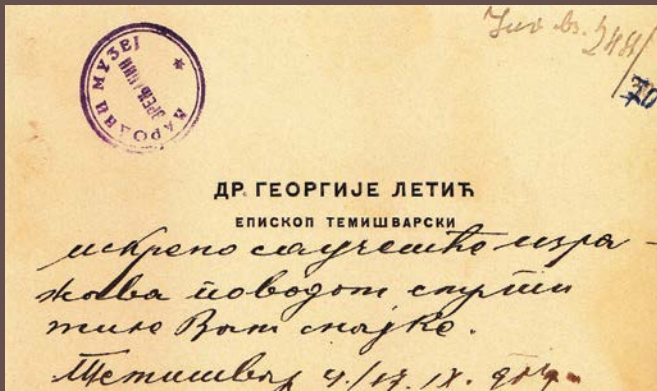 Инв. бр. 2481/
70
НАРОДНИ МУЗЕЈ
ЗРЕЊАНИН
ДР. ГЕОРГИЈЕ ЛЕТИЋ
ЕПИСКОП ТЕМИШВАРСКИ
искрено саучешће изра-
жава поводом смрти
Ваше мајке.
Темишвар 4./17. IX.